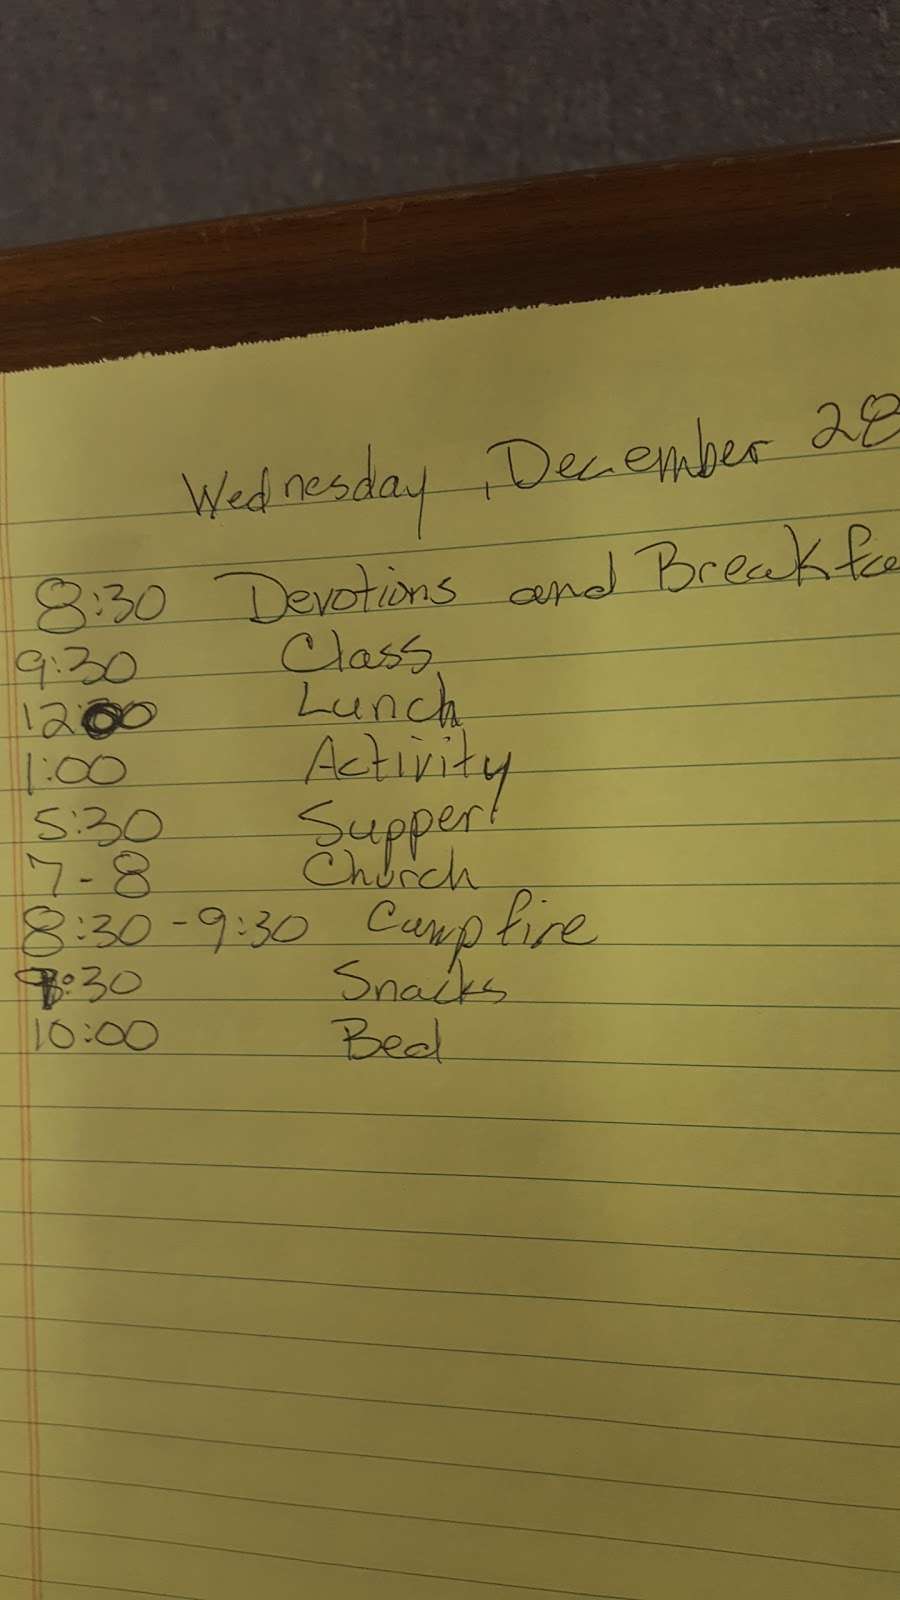 Wednesday, December 28
8:30 Devotions and Breakfa
9:30 Class
12:00 Lunch
1:00 Activity
5:30 Supper
7-8 Church
8:30-9:30 Campfire
9:30 Snacks
10:00 Bed